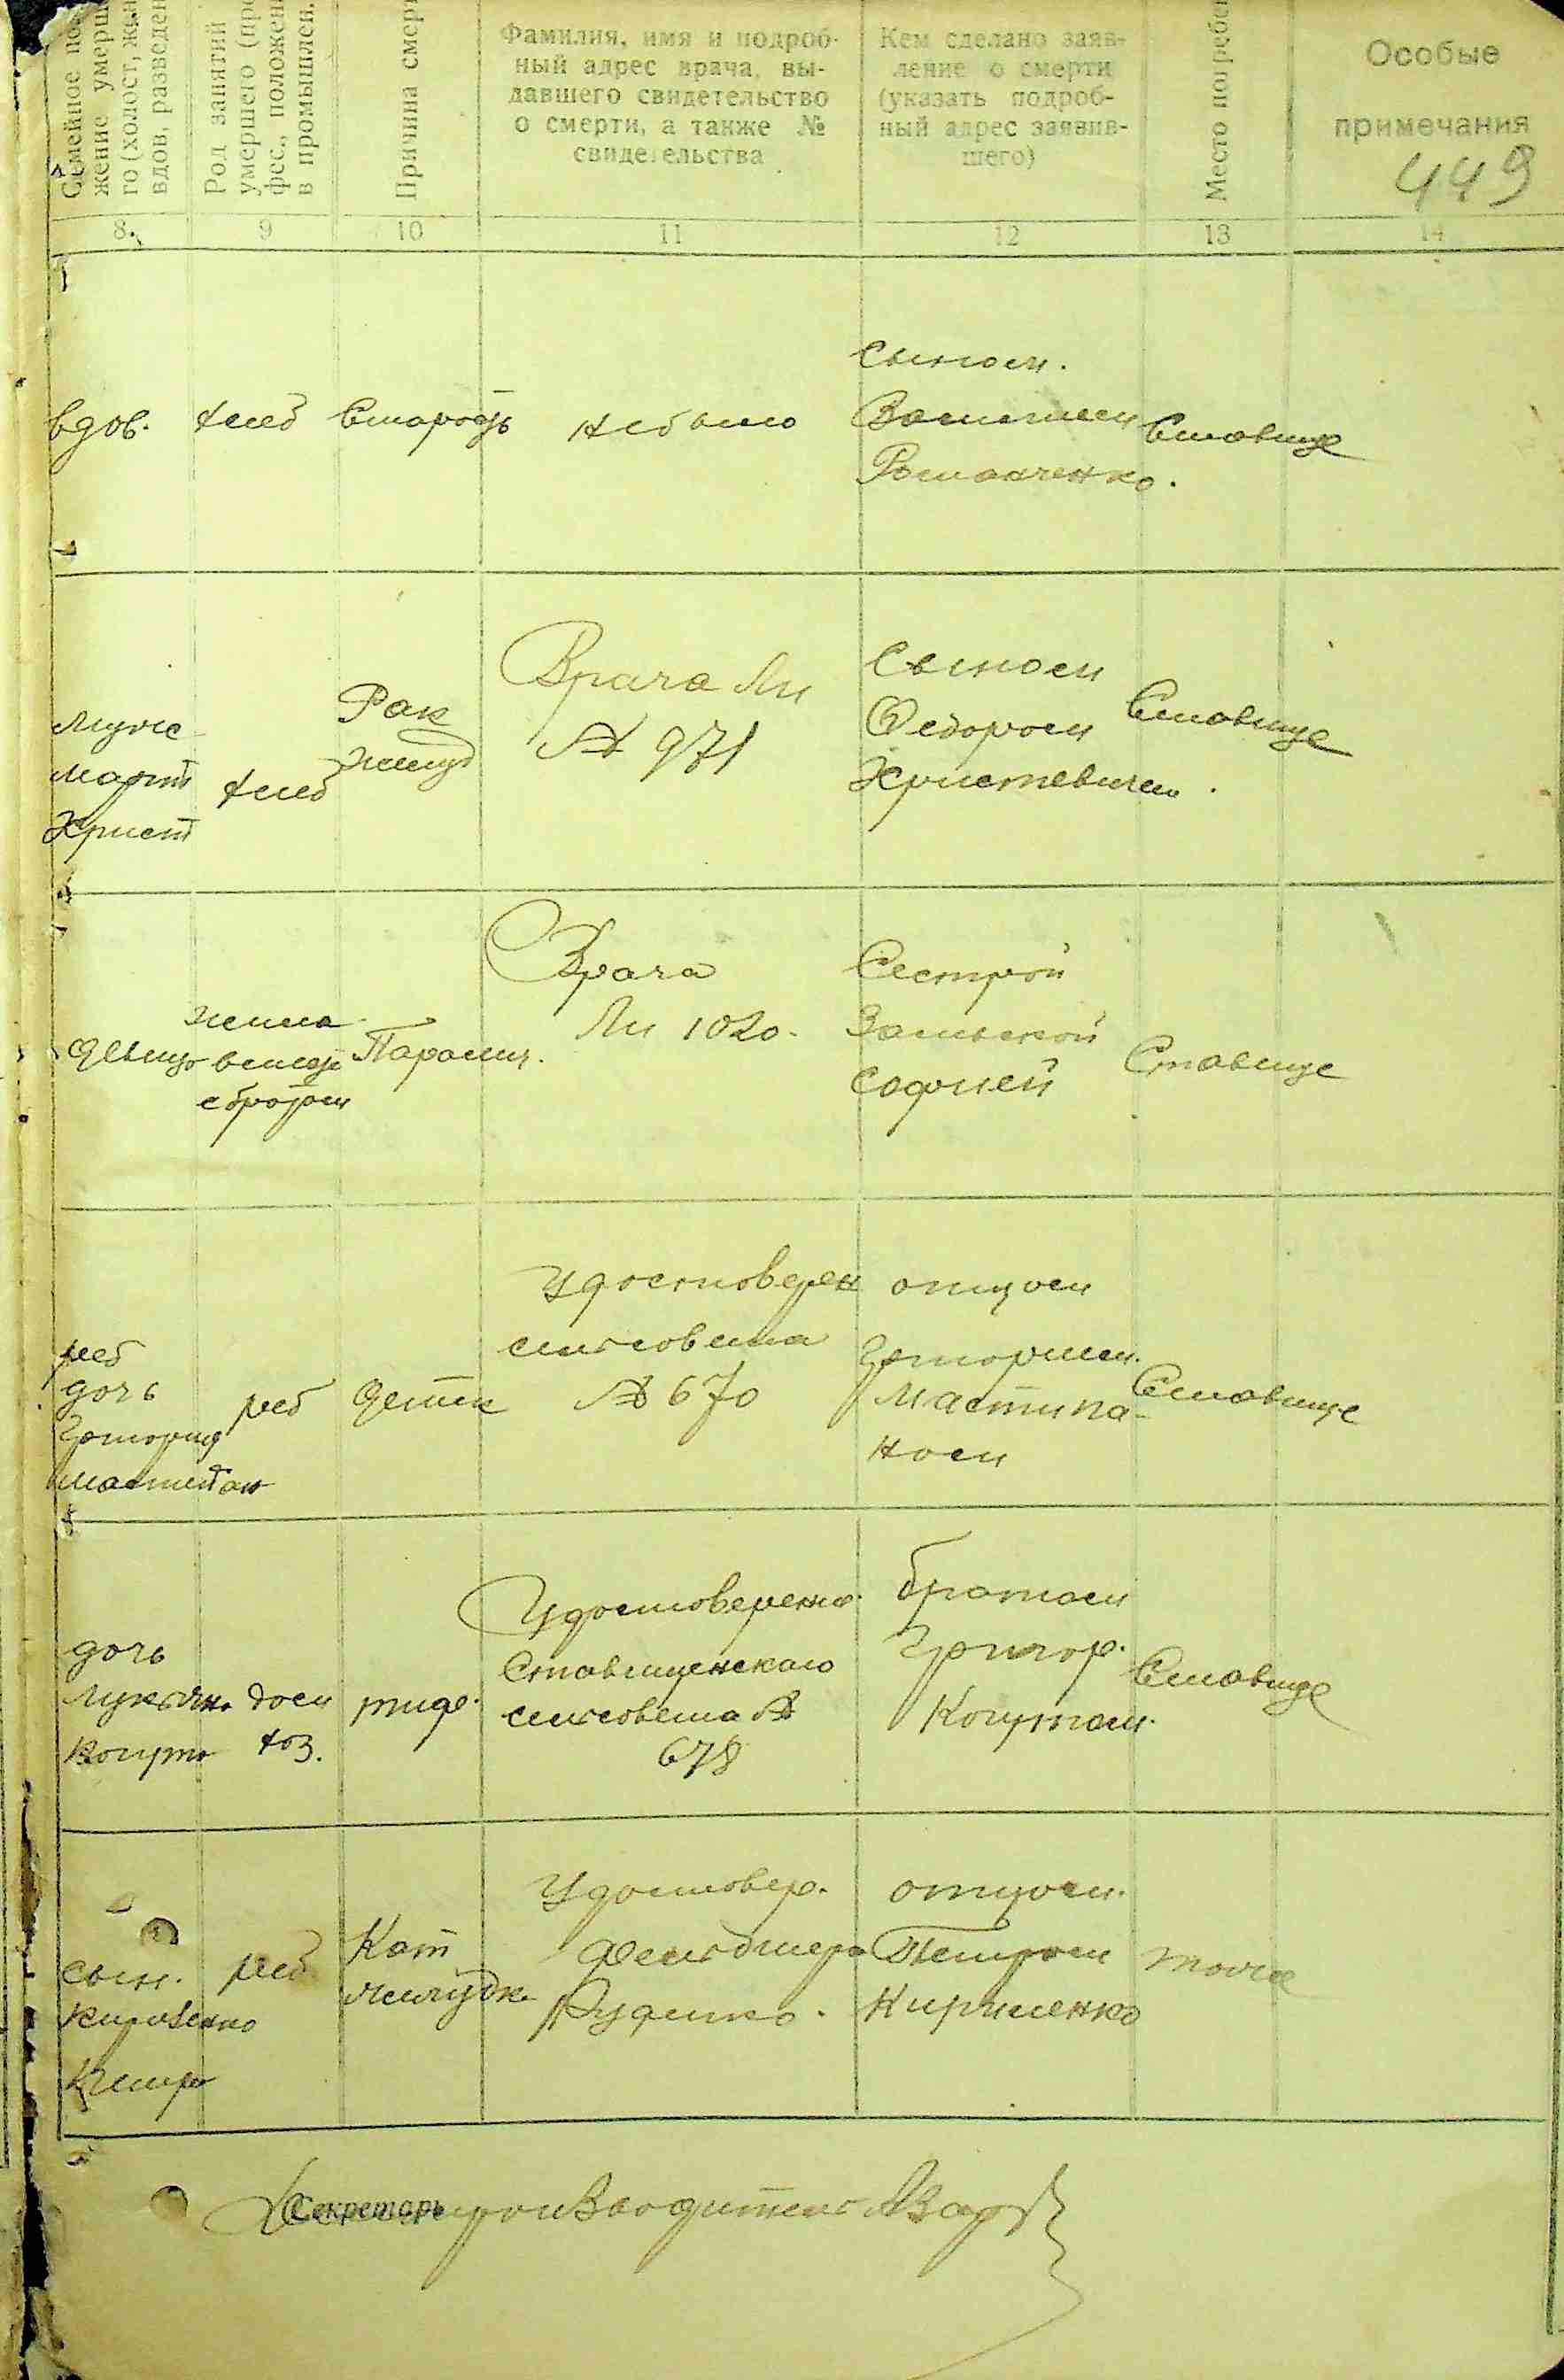 Семейное по
жение умерш
го (холост, жен
вдов, разведен
Род занятий
умершего (пр
фес., положен
в промышлен.
Причина смерт
Фамилия, имя и подроб-
ный адрес врача, вы-
давшего свидетельство
о смерти, а также №
свидетельства
Кем сделано заяв-
ление о смерти
(указать подроб-
ный адрес заявив-
шего)
Место погребе
Особые
примечания
449
8. 9 10 11 12 13 14
вдов.
хлеб
Старость
не было
Сыном.
Романченко.
Ставище
муж
Март
Христ
хлеб
Рак
желуд
Врача Ли
№ 971
Сыном
Федором
Христевичем.
Ставище
девица
жила
Паралич.
Врача
Ли 1020.
Сестрой
Зальской
Софией
Ставище
реб
дочь
реб
детск
Удостоверен
сельсовета
№ 670
отцом
Мастипа-
ном
Ставище
дочь
Лукьяна
Когута
дом
хоз.
тиф.
Удостоверение
Ставищенского
сельсовета №
678
братом
Григор.
Когутом.
Ставище
сын.
реб
Кат
желудка
Удостовер.
Фельдшера
Руденко.
отцом.
Петром
Кириленко
тоже
Секретарь
Делопроизводитель